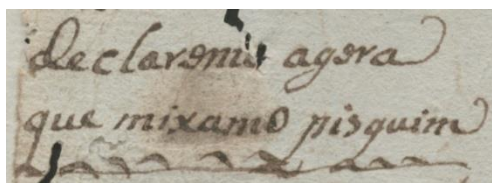 declarenus agera
que mixamo pisquim